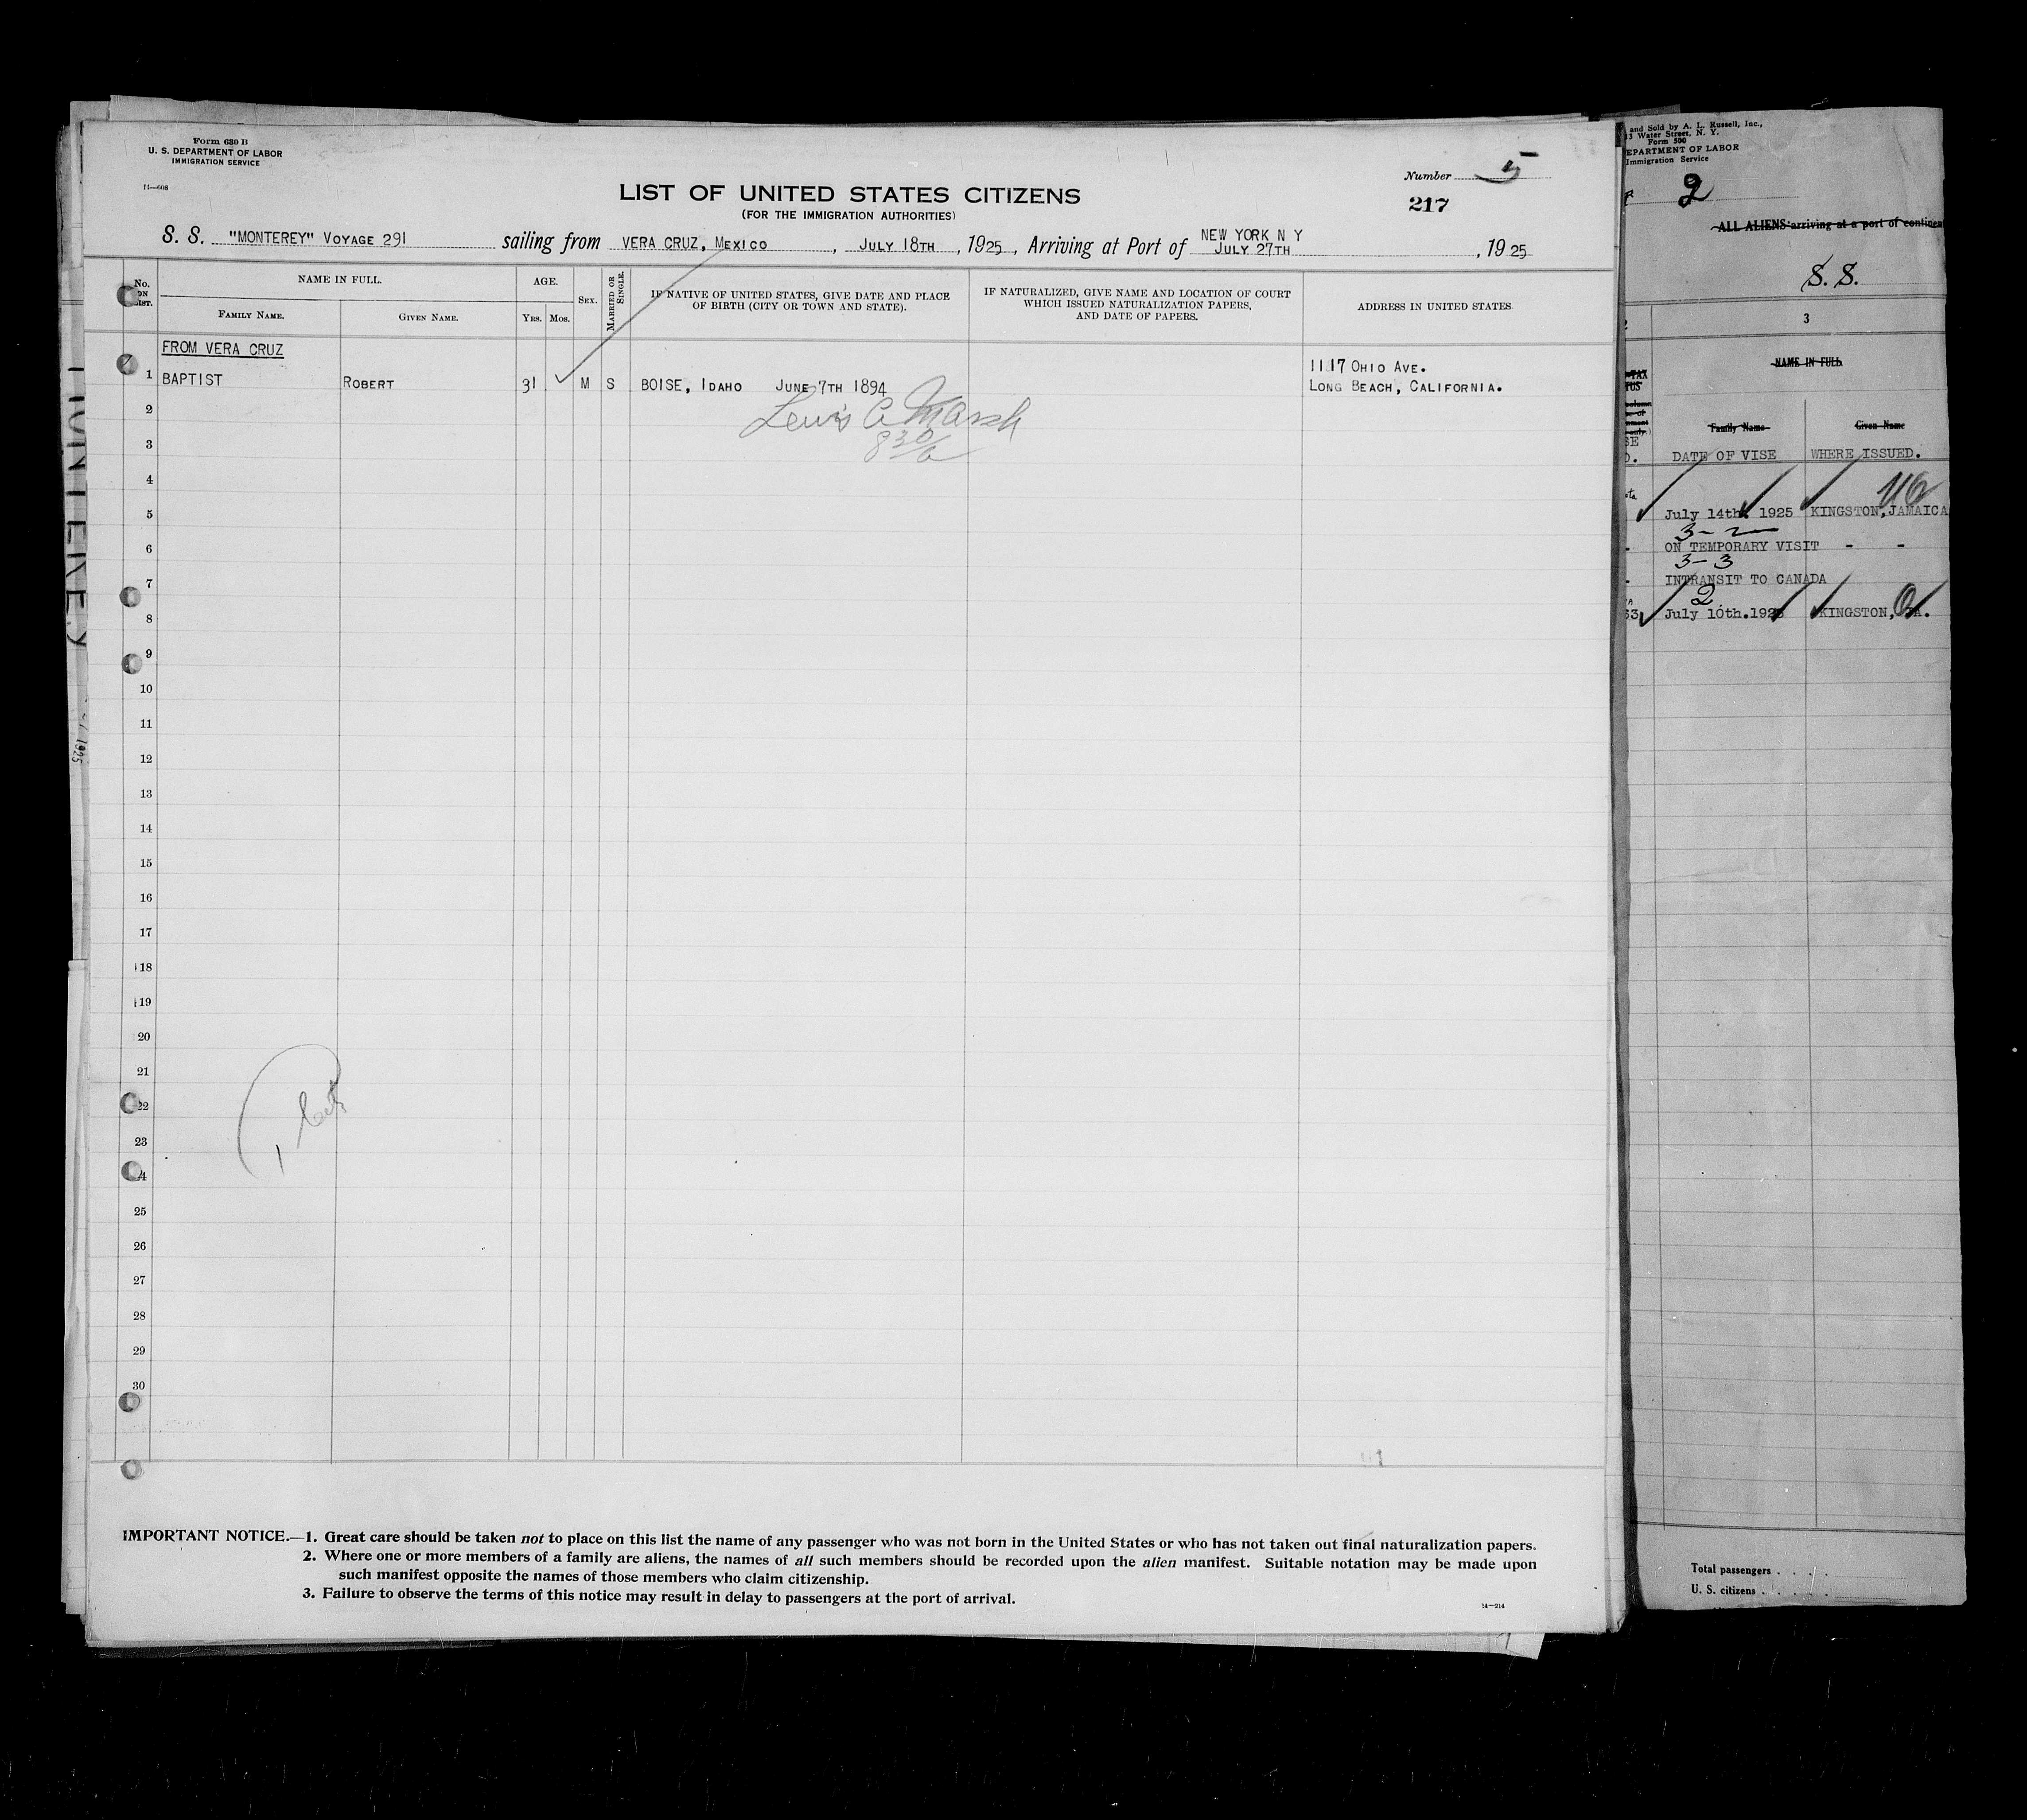 Form 630 B
U. S. DEPARTMENT OF LABOR
IMMIGRATION SERVICE
14—608
Number 5
217
LIST OF UNITED STATES CITIZENS
(FOR THE IMMIGRATION AUTHORITIES)
S. S. "MONTEREY" VOYAGE 291 sailing from VERA CRUZ, MEXICO, JULY 18TH, 1925, Arriving at Port of NEW YORK N Y JULY 27TH, 1925
No. ON LIST.
NAME IN FULL.
FAMILY NAME.
GIVEN NAME.
AGE.
YRS.
MOS.
SEX.
MARRIED OR SINGLE.
IF NATIVE OF UNITED STATES, GIVE DATE AND PLACE
OF BIRTH (CITY OR TOWN AND STATE).
IF NATURALIZED, GIVE NAME AND LOCATION OF COURT
WHICH ISSUED NATURALIZATION PAPERS,
AND DATE OF PAPERS.
ADDRESS IN UNITED STATES.
FROM VERA CRUZ
1117 OHIO AVE.
1 BAPTIST ROBERT 31 M S BOISE, IDAHO JUNE 7TH 1894 LONG BEACH, CALIFORNIA.
Lewis A Marsh
830/a
2
3
4
5
6
7
8
9
10
11
12
13
14
15
16
17
18
19
20
21
22
23
24
25
26
27
28
29
30
IMPORTANT NOTICE.—1. Great care should be taken not to place on this list the name of any passenger who was not born in the United States or who has not taken out final naturalization papers.
2. Where one or more members of a family are aliens, the names of all such members should be recorded upon the alien manifest. Suitable notation may be made upon
such manifest opposite the names of those members who claim citizenship.
3. Failure to observe the terms of this notice may result in delay to passengers at the port of arrival.
14—214
MONTEREY
1925
and Sold by A. L. Russell, Inc.,
Water Street, N. Y.
Form 500
DEPARTMENT OF LABOR
Immigration Service
2
ALL ALIENS arriving at a port of continent
S. S.
3
NAME IN FULL
Family Name
Given Name
DATE OF VISE
WHERE ISSUED.
July 14th. 1925 KINGSTON, JAMAICA
3-2
ON TEMPORARY VISIT - -
3-3
INTRANSIT TO CANADA
2
63 July 10th. 1925 KINGSTON, JA.
Total passengers . . . .
U. S. citizens . . . . .